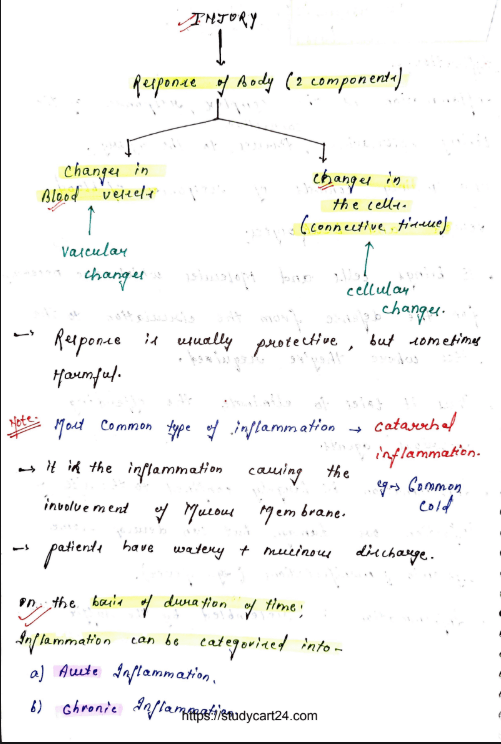 INJURY
Response of Body (2 components)
Changes in
Blood vessels
Changes in
the cells.
(connective tissue)
vascular
changes
cellular
changes.
→ Response is usually protective, but sometimes
Harmful.
Note. Most Common type of inflammation → catarrhal
inflammation.
→ It is the inflammation causing the
eg → Common
cold
involvement of Mucous Membrane.
→ patients have watery + mucinous discharge.
on the basis of duration of time;
Inflammation can be categorised into-
a) Acute Inflammation.
b) Chronic Inflammation
https://studycart24.com